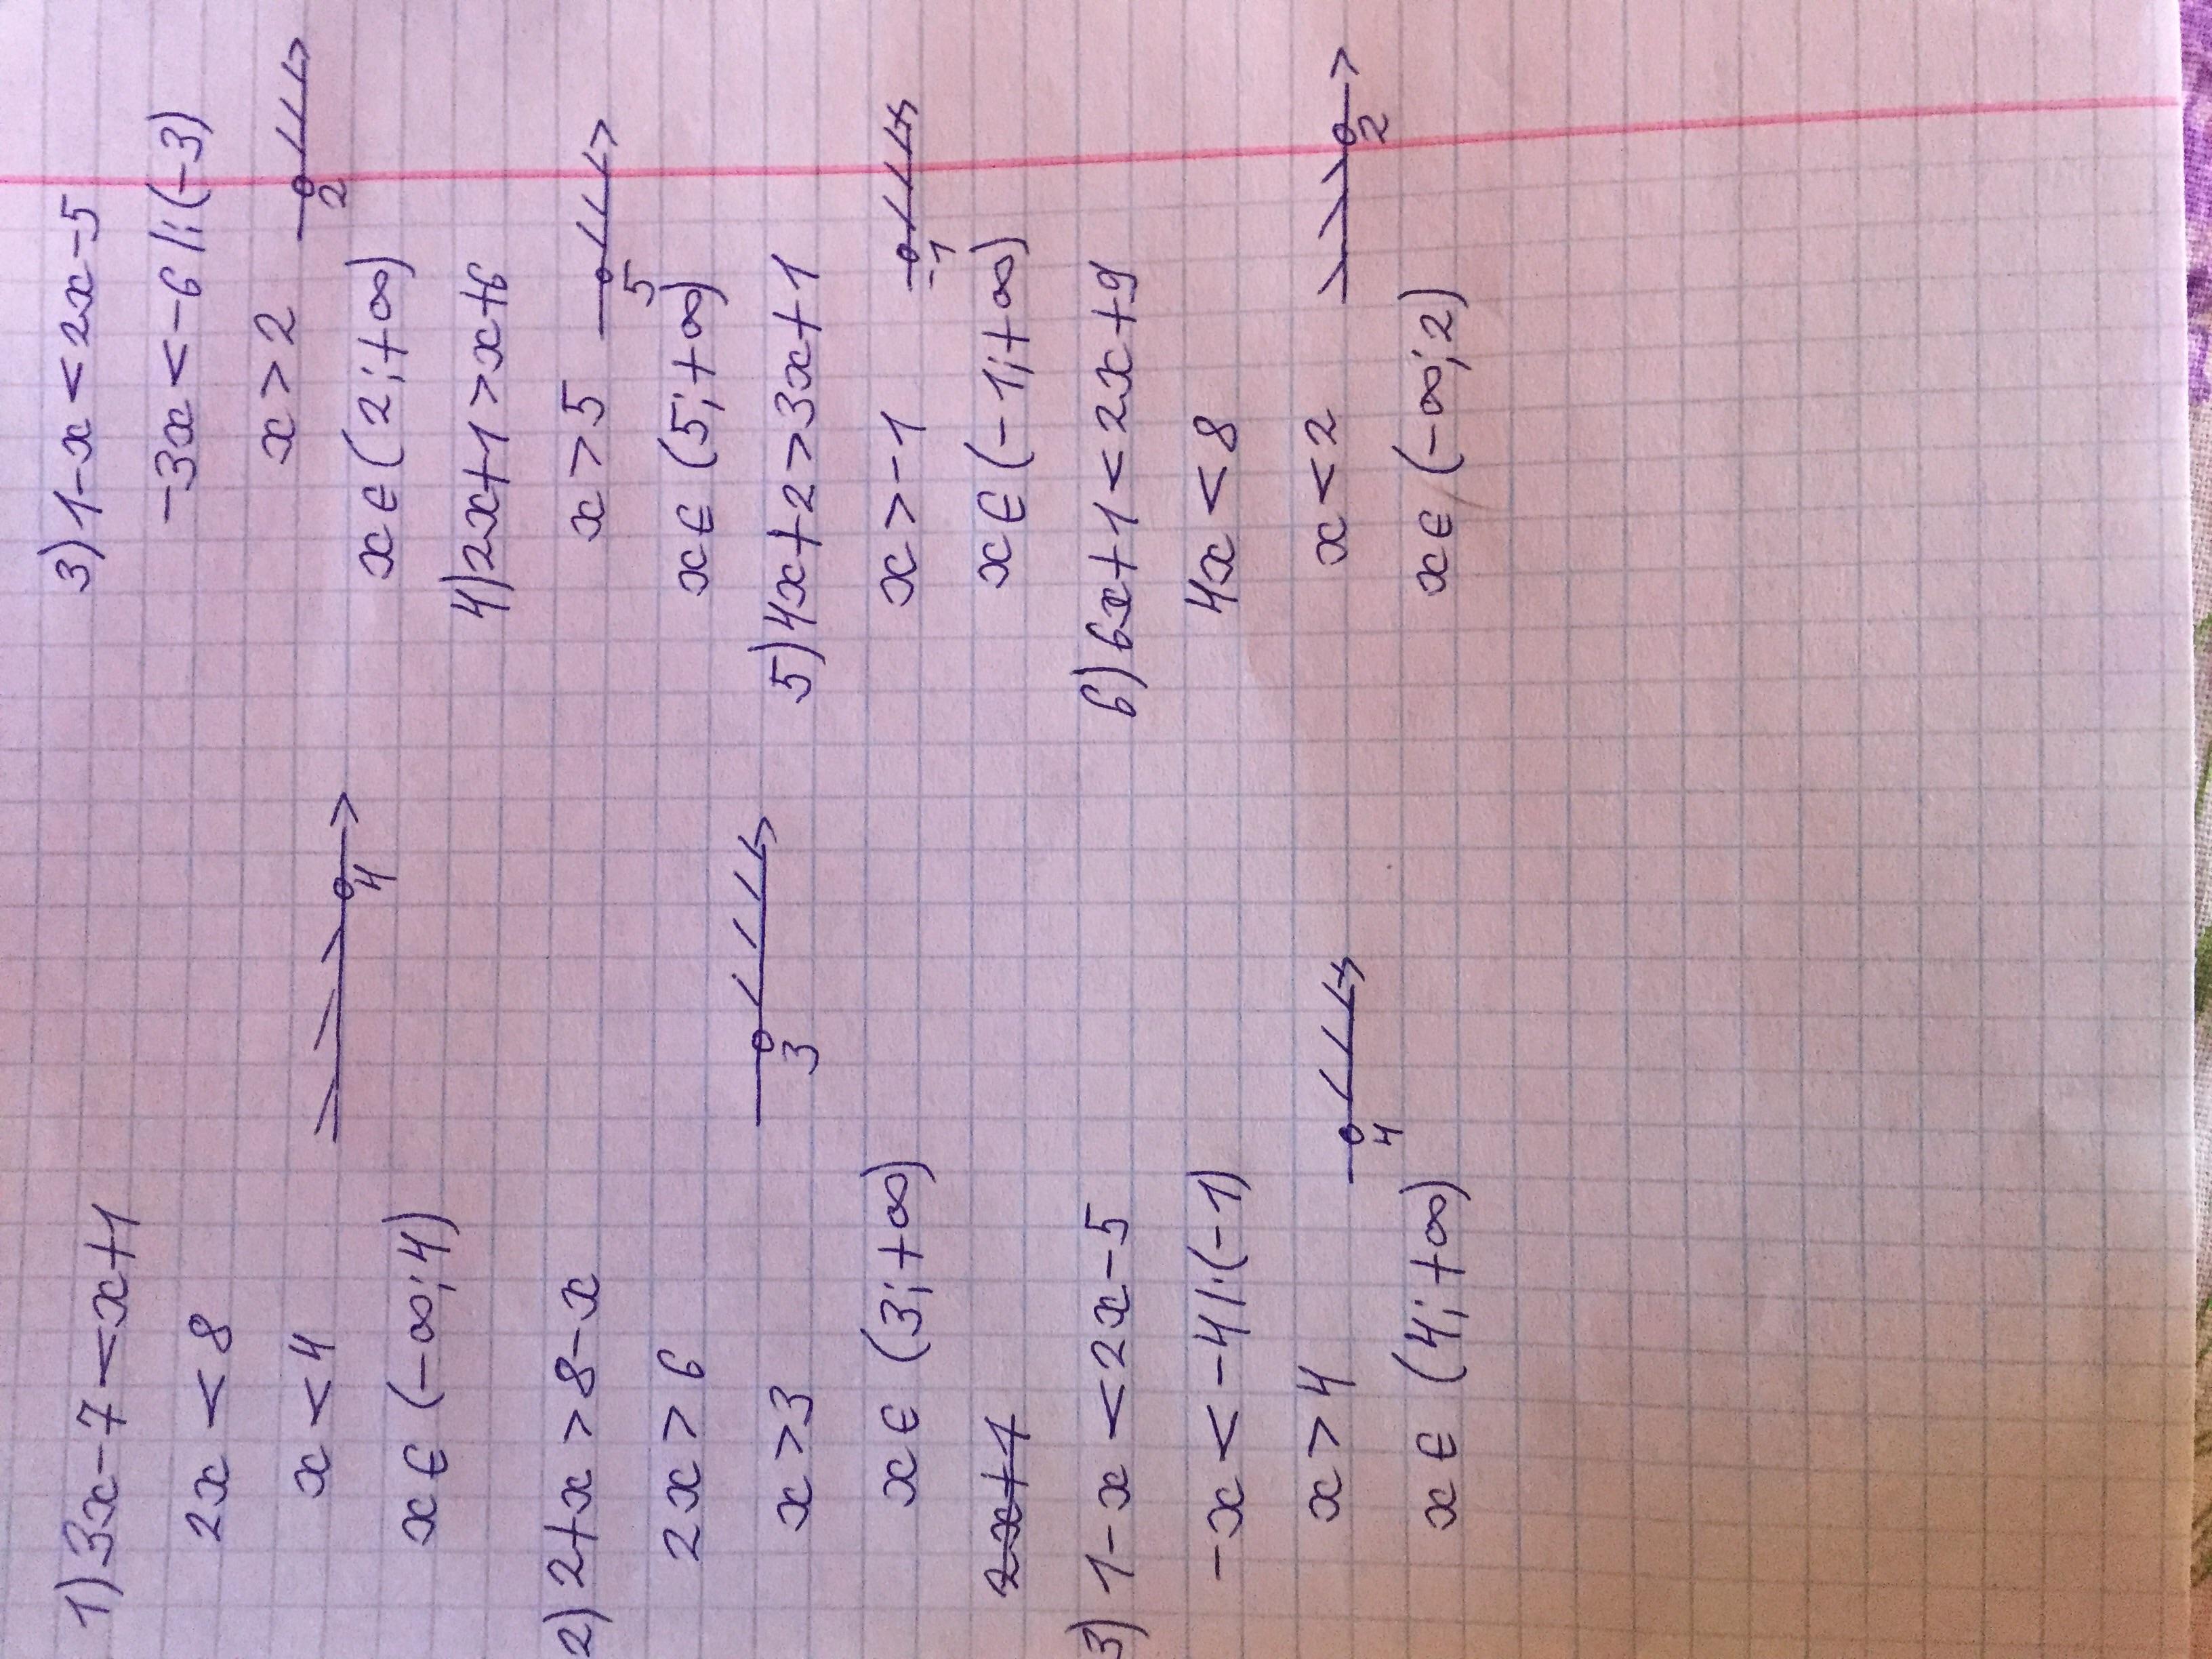 1) 3x-7<x+1
2x<8
x<4
4
x∈(-∞;4)
2) 2+x>8-x
2x>6
x>3
3
x∈(3;+∞)
2x+1
3) 1-x<2x-5
-x<-4|·(-1)
x>4
4
x∈(4;+∞)
3) 1-x<2x-5
-3x<-6|:(-3)
x>2
2
x∈(2;+∞)
4) 2x+1>x+6
x>5
5
x∈(5;+∞)
5) 4x+2>3x+1
x>-1
-1
x∈(-1;+∞)
6) 6x+1<2x+9
4x<8
x<2
2
x∈(-∞;2)